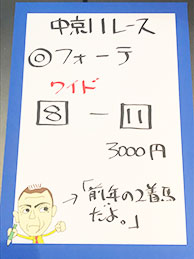 中京11レース
◎フォーテ
ワイド
8 - 11
3000円
→「前年の2着馬
だよ。」